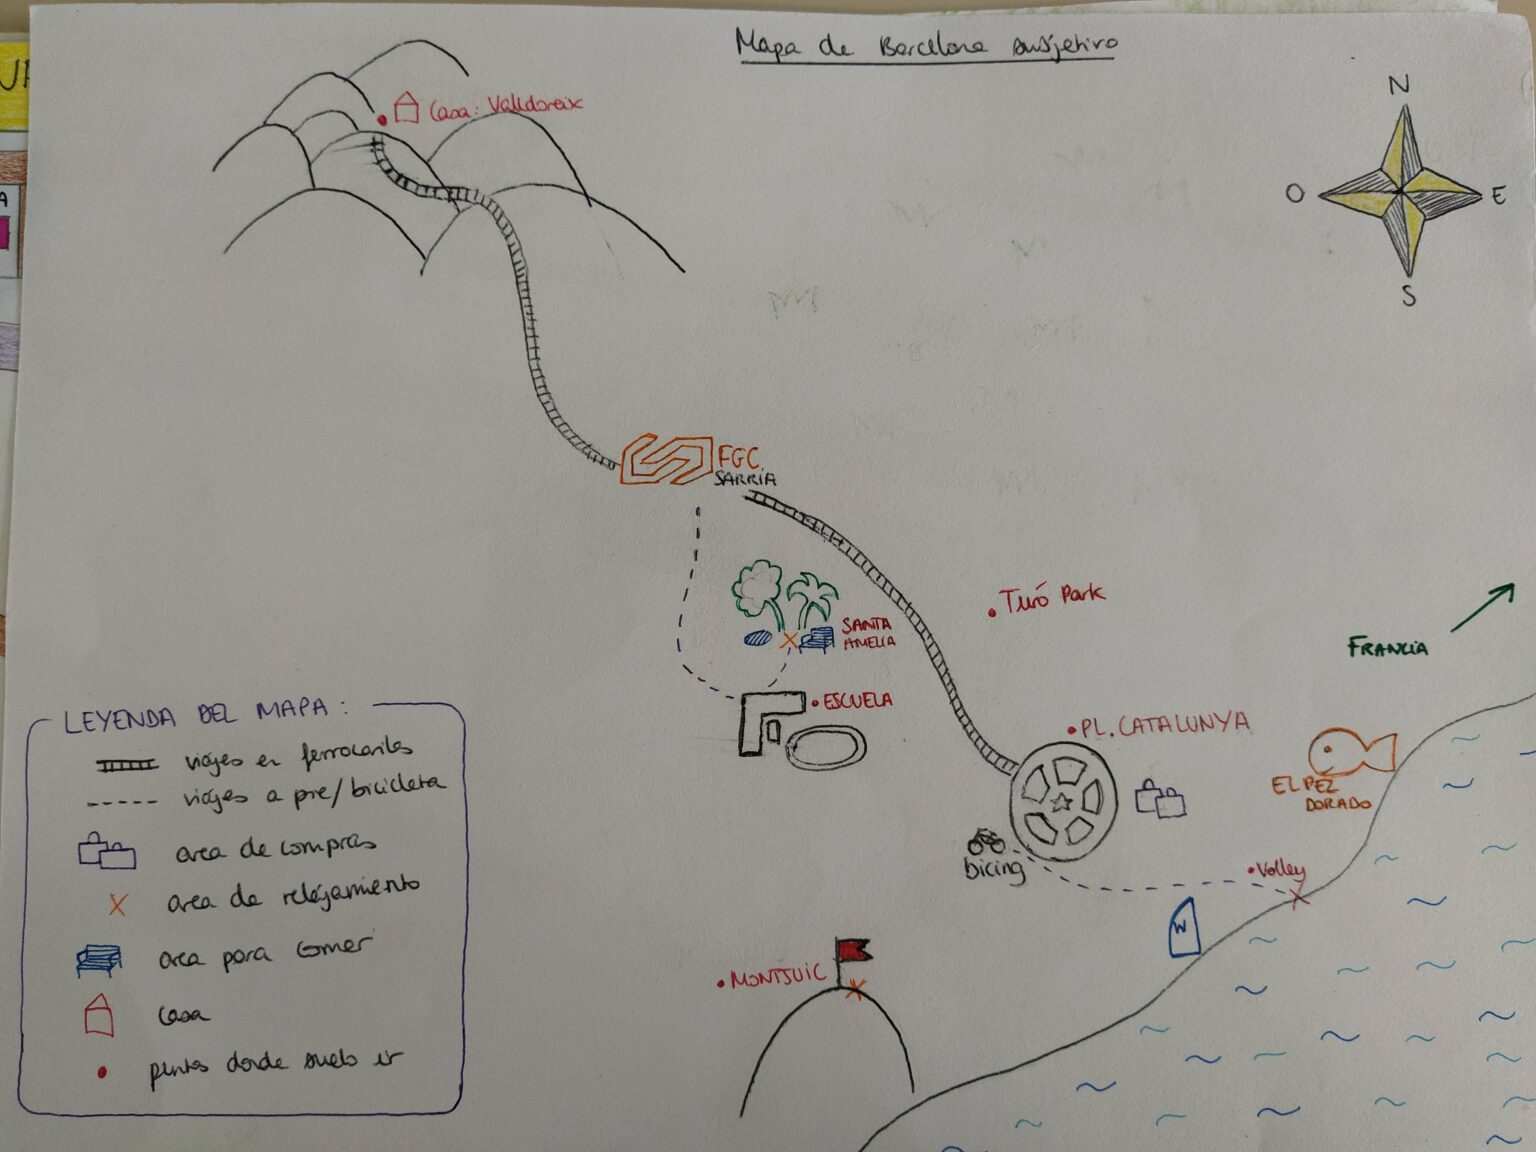 Mapa de Barcelona subjetivo
N
O
E
S
Casa: Valldoreix
FGC
SARRIA
Turó Park
SANTA
AMELIA
FRANCIA
ESCUELA
PL. CATALUNYA
EL PEZ
DORADO
bicing
Volley
W
MONTJUIC
LEYENDA DEL MAPA:
viajes en ferrocariles
viajes a pie/bicicleta
area de compras
area de relajamiento
area para comer
casa
puntos donde suelo ir